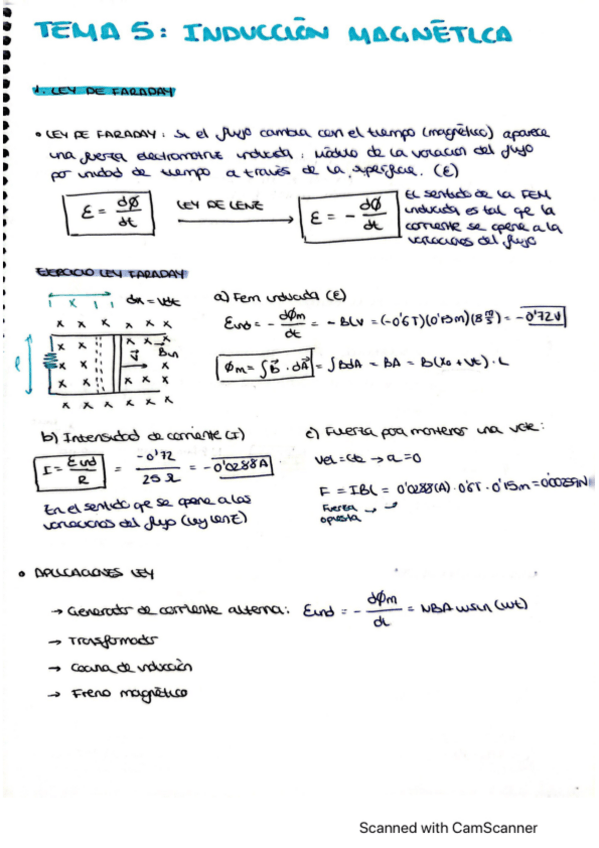 TEMA 5: INDUCCIÓN MAGNÉTICA
1. LEY DE FARADAY
• LEY DE FARADAY: Si el flujo cambia con el tiempo (magnético) aparece
una fuerza electromotriz inducida: módulo de la variación del flujo
por unidad de tiempo a través de la superficie. (ε)
ε = dϕ/dt
LEY DE LENZ
ε = - dϕ/dt
El sentido de la FEM
inducida es tal que la
corriente se opone a la
variaciones del flujo
EJERCICIO LEY FARADAY
x dx = vdt
a) Fem inducida (ε)
εind = - dϕm/dt = - Blv = (-0'6T)(0'15m)(8 m/s) = -0'72V
ϕm = ∫B⃗ · dA⃗ = ∫BdA = BA = B(x0 + vt) · L
b) Intensidad de corriente (I)
I = εind/R = -0'72/25 Ω = -0'0288A
En el sentido que se opone a las
variaciones del flujo (ley LENZ)
c) Fuerza para mantener una vcte:
vel = cte → a = 0
F = IBl = 0'0288(A) · 0'6T · 0'15m = 0'00259N
Fuerza
opuesta
• APLICACIONES LEY
→ Generador de corriente alterna: εind = - dϕm/dt = NBAwsin(wt)
→ Transformador
→ Cocina de inducción
→ Freno magnético
Scanned with CamScanner